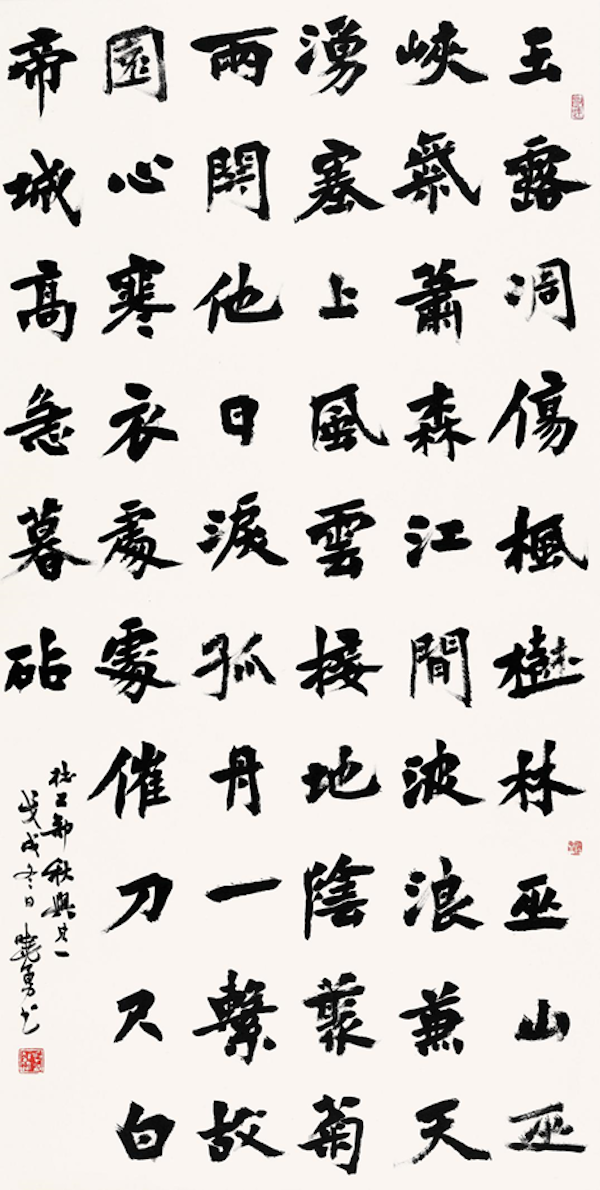 玉露凋傷楓樹林巫山巫
峽氣蕭森江間波浪兼天
湧塞上風雲接地陰叢菊
兩開他日淚孤舟一繫故
園心寒衣處處催刀尺白
帝城高急暮砧
杜工部秋興其一
戊戌冬日曉勇書